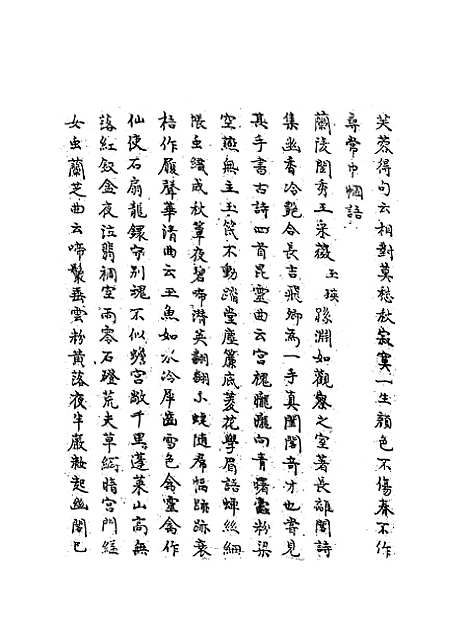 芙蓉得句云相對莫愁秋寂寞一生顏色不傷春不作
尋常巾幗語
蘭陵閨秀王采薇 玉瑛 孫淵如觀察之室著長離閣詩
集幽香冷艷合長吉飛卿為一手真閨閣奇才也嘗見
其手書古詩四首昆靈曲云宮槐朧朧向青曙 粉梁
空燕無主玉 不動踏堂塵簾底菱花學眉語蟬絲網
隈虫織成秋簟夜碧啼潛英翩翩小蛺隨席幅跡跡衰
梧作屧聲華清曲云玉魚如水冷犀齒雪色禽靈禽作
仙使石扇龍鐶守別魂不似蟾宮敞千里蓬萊山高無
落紅釵金夜泣翡裯空雨零石磴荒夫草緺暗宮門經
女虫蘭芝曲云啼鬟垂雲粉黃落夜半嚴妝起幽閣已